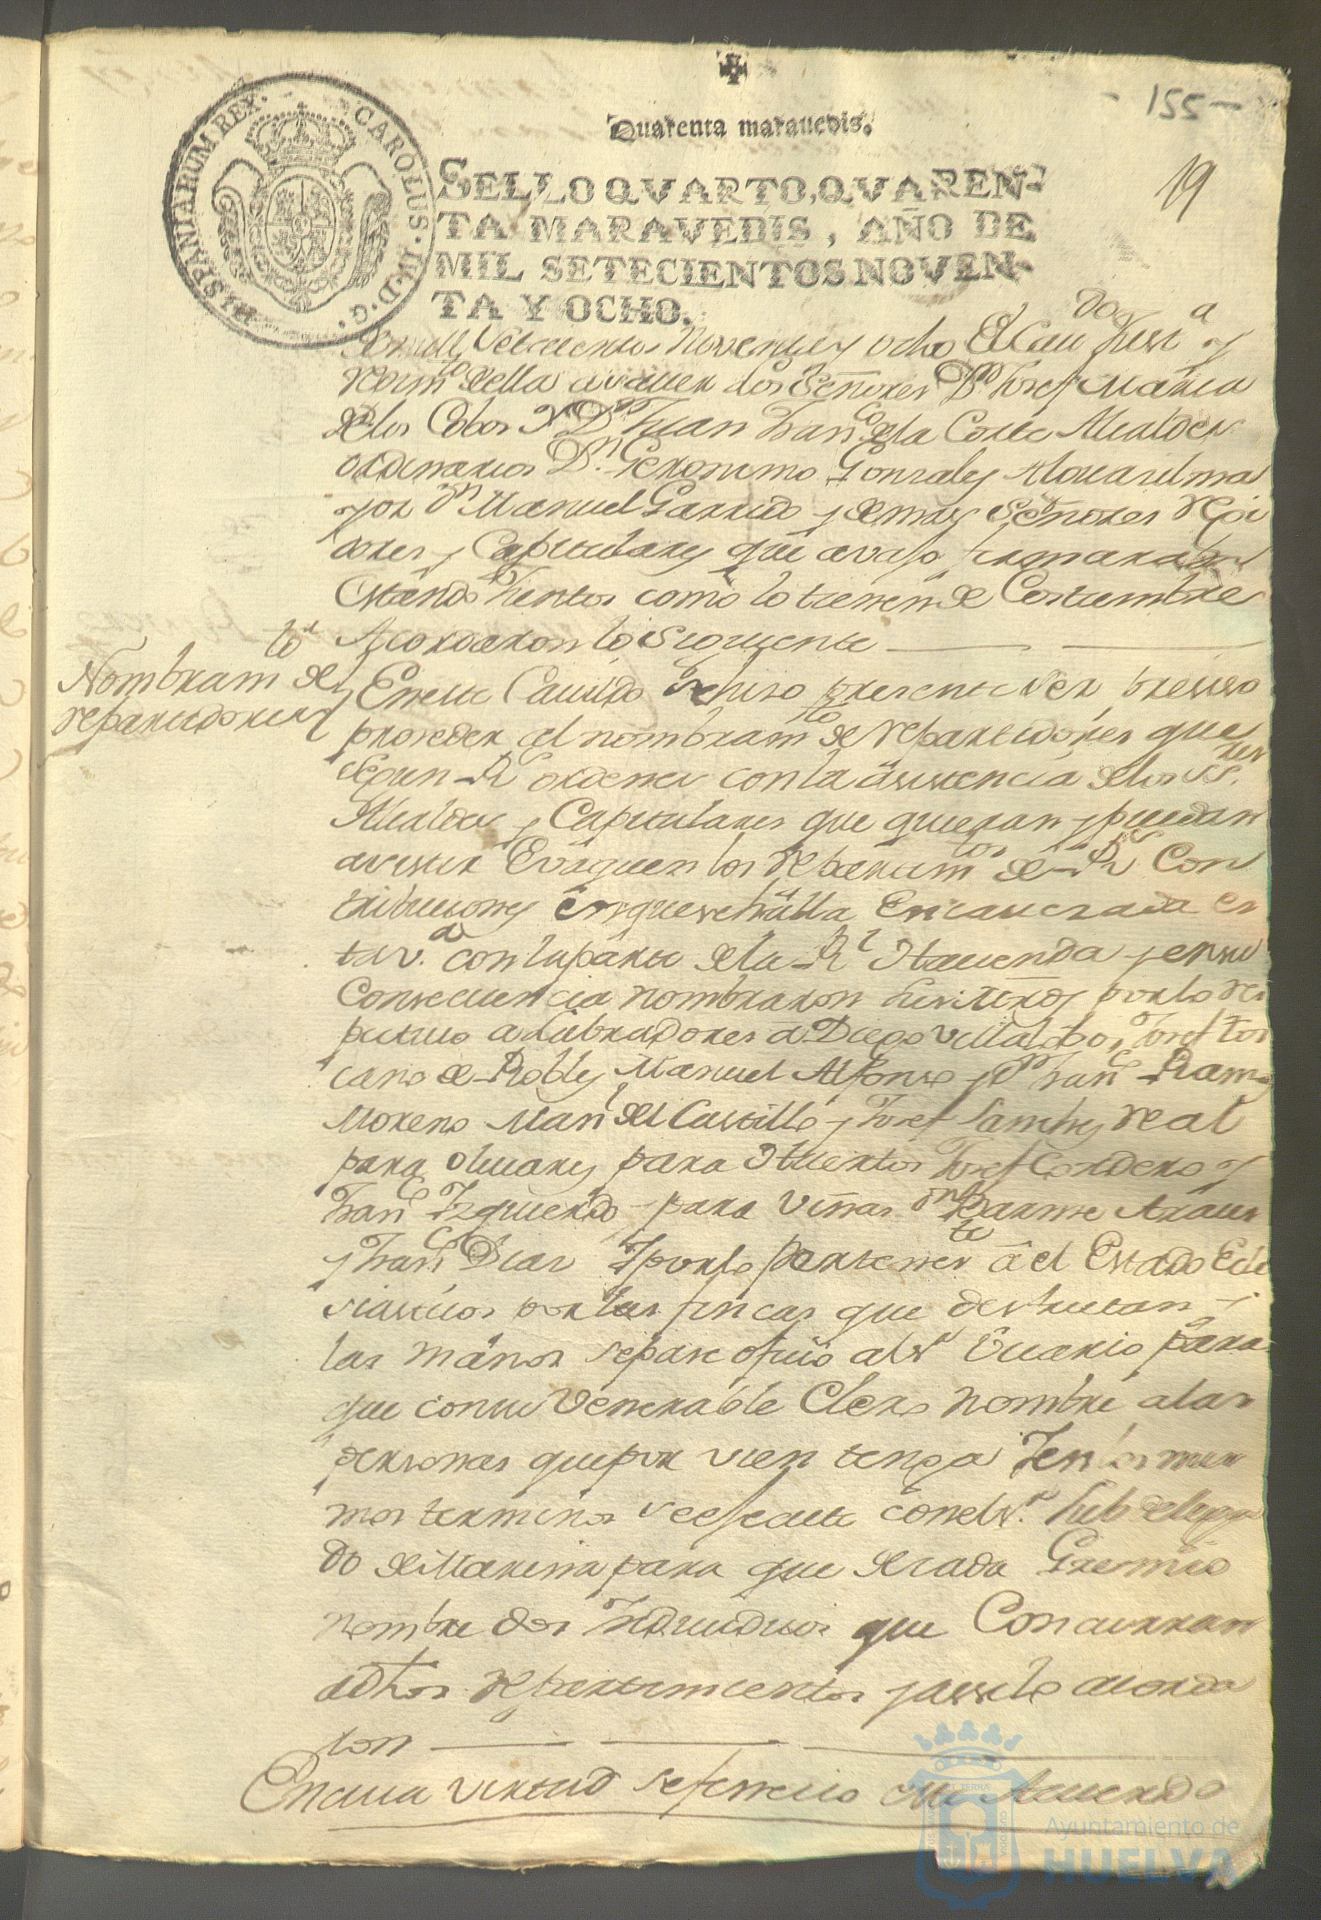 - 155 -
19
Quarenta marauedis.
HISPANIARUM REX. CAROLUS. IV. D. G.
SELLO QVARTO, QVAREN-
TA MARAVEDIS, AÑO DE
MIL SETECIENTOS NOVEN-
TA Y OCHO.
de mill Setecientos Noventa y ocho El Cavdo Justa y
Regimto de ella a saver los Señores Dn Josef Maria
de los Cobos y Dn Juan Franco de la Corte Alcaldes
ordinarios Dn Geronimo Gonzales Alguasil ma
yor Dn Manuel Garrido y demas Señores Regi
dores y Capitulares que avajo firmaran
Estando Juntos como lo tienen de Costumbre
Acordaron lo Siguiente
Nombramto de
repartidores
En este Cavildo Se hiso presente ser preciso
proseder al nombramto de repartidores que
segun Rs ordenes con la asistencia de los SSres
Alcaldes y Capitulares que quieran y puedan
asistir Evaquen los repartamtos de Rs Con
tribuciones en que se halla Encavezada es
ta va con la parte de la Rl Hacienda y en su
Consecuencia nombraron por lo res
pectivo a Labradores a Diego Villalbo, Josef Tos
cano de Robles Manuel Alfonso y Dn Franco Ram
Moreno Manl del Castillo y Josef Sanches real
para olivares para Huertos Josef Cordero y
Franco Izquierdo para viñas Dn
y Franco Diaz Y por lo pertenete a el Estado Ecle
siasticos por las fincas que disfrutan y
las manos se pase oficio al Sr Vicario para
que con su Venerable Clero nombre a las
personas que por vien tenga Y en los mis
mos terminos se efecute con el Sr Subdelega
do de Marina para que de cada Gremio
nombre dos Individuos que Concurran
a dhos repartimientos y asi lo acorda
ron
En cuia virtud se feneció este Acuerdo
Ayuntamiento de
HUELVA